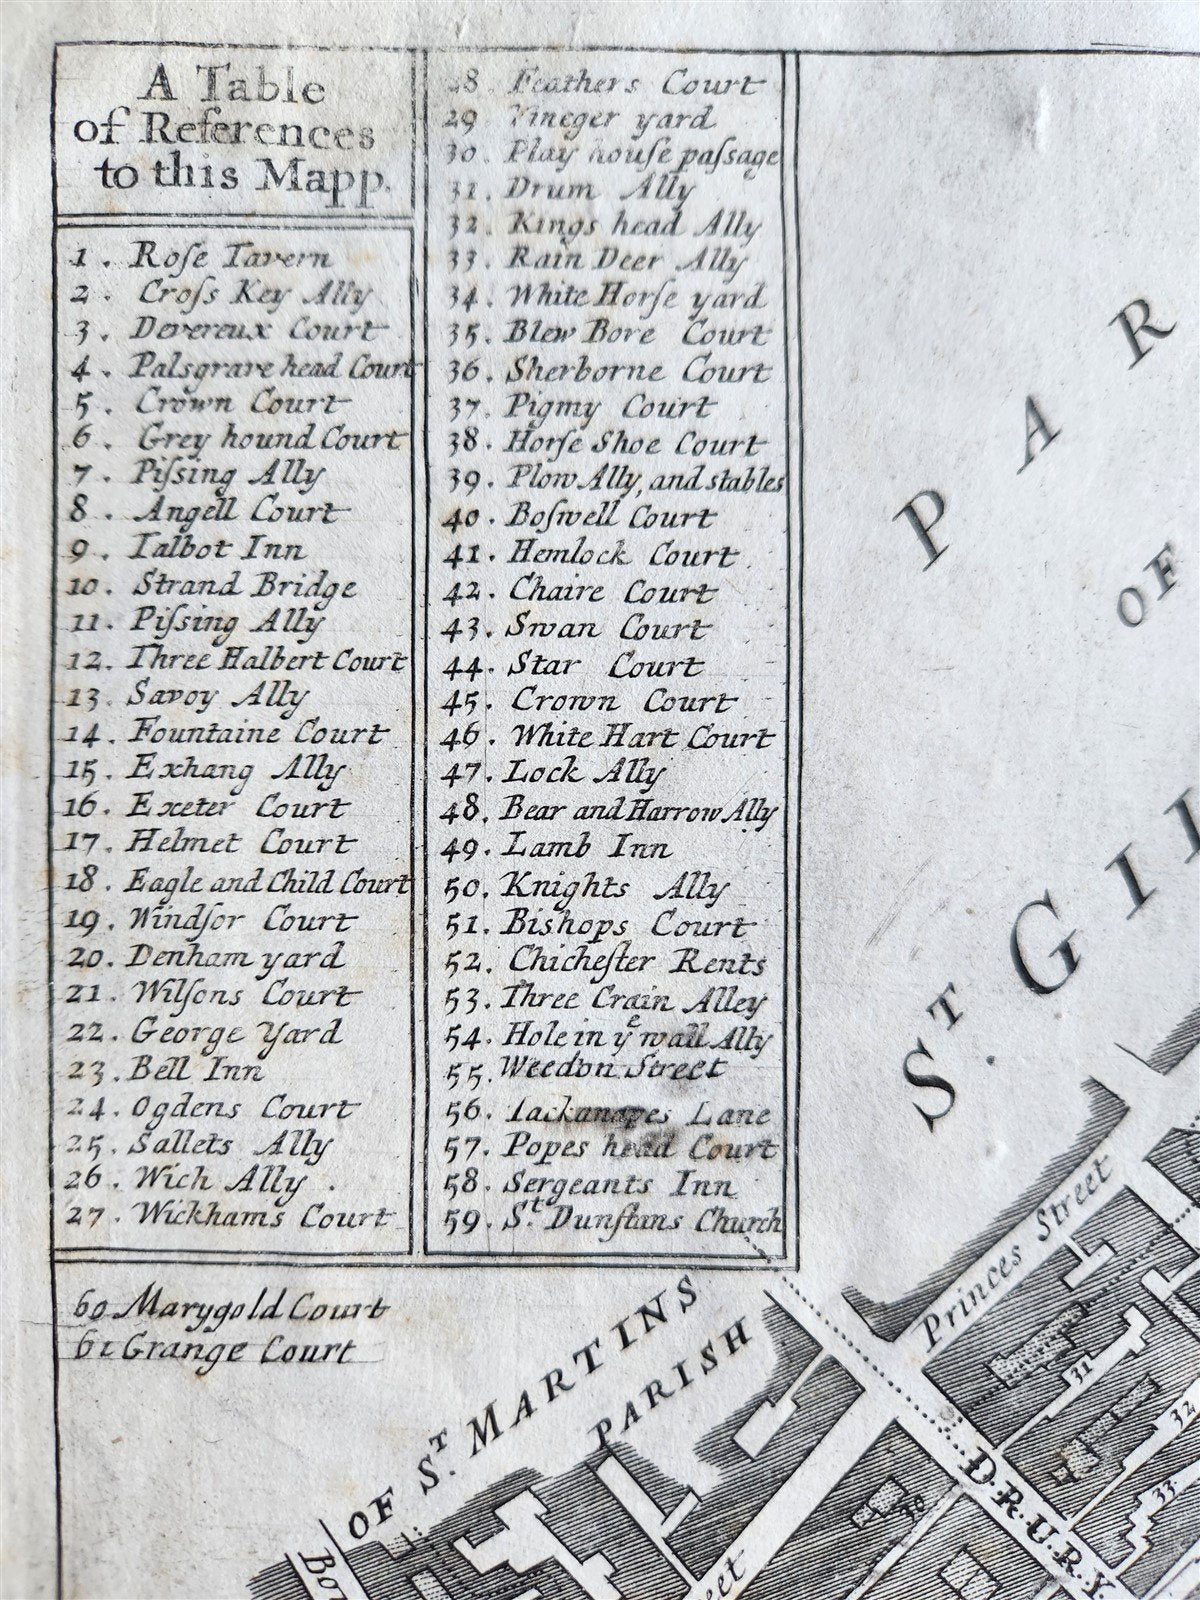 A Table
of References
to this Mapp.
1. Roſe Tavern
2. Croſs Key Ally
3. Devereux Court
4. Palsgrave head Court
5. Crown Court
6. Grey hound Court
7. Piſsing Ally
8. Angell Court
9. Talbot Inn
10. Strand Bridge
11. Piſsing Ally
12. Three Halbert Court
13. Savoy Ally
14. Fountaine Court
15. Exhang Ally
16. Exeter Court
17. Helmet Court
18. Eagle and Child Court
19. Windſor Court
20. Denham yard
21. Wilſons Court
22. George Yard
23. Bell Inn
24. Ogdens Court
25. Sallets Ally
26. Wich Ally.
27. Wickhams Court
28. Feathers Court
29. Vineger yard
30. Play houſe paſsage
31. Drum Ally
32. Kings head Ally
33. Rain Deer Ally
34. White Horſe yard
35. Blew Bore Court
36. Sherborne Court
37. Pigmy Court
38. Horſe Shoe Court
39. Plow Ally, and stables
40. Boſwell Court
41. Hemlock Court
42. Chaire Court
43. Swan Court
44. Star Court
45. Crown Court
46. White Hart Court
47. Lock Ally
48. Bear and Harrow Ally
49. Lamb Inn
50. Knights Ally
51. Bishops Court
52. Chicheſter Rents
53. Three Crain Alley
54. Hole in yᵉ wall Ally
55. Weedon Street
56. Iackanapes Lane
57. Popes head Court
58. Sergeants Inn
59. Sᵗ. Dunſtans Church
60 Marygold Court
61 Grange Court
PAR
OF
Sᵀ. GI
OF Sᵀ. MARTINS
PARISH
Princes Street
31
32
33
30
DRURY